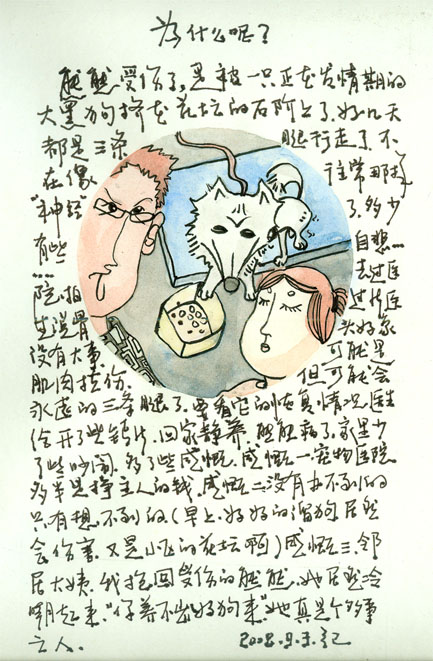 为什么呢？
熊熊受伤了，是被一只正在发情期的
大黑狗挤在花坛的石阶上了，好几天
都是三条腿行走了，不
在像往常那样
“神经”了，多少
有些自悲……
……去过医
院，拍过片医
生说骨头好象
没有大事可能是
肌肉拉伤，但可能会
永远的三条腿了，要看它的恢复情况，医生
给开了些钙片，回家静养，熊熊病了，家里少
了些吵闹，多了些感慨，感慨一：宠物医院
多半是挣主人的钱，感慨二：没有办不到的
只有想不到的（早上好好的溜狗居然
会伤害，又是小区的花坛啊）感慨三：邻
居大姨，我抱回受伤的熊熊，她居然冷
嘲起来“你养不出好狗来”她真是个多事
之人。 2008.9.3.记